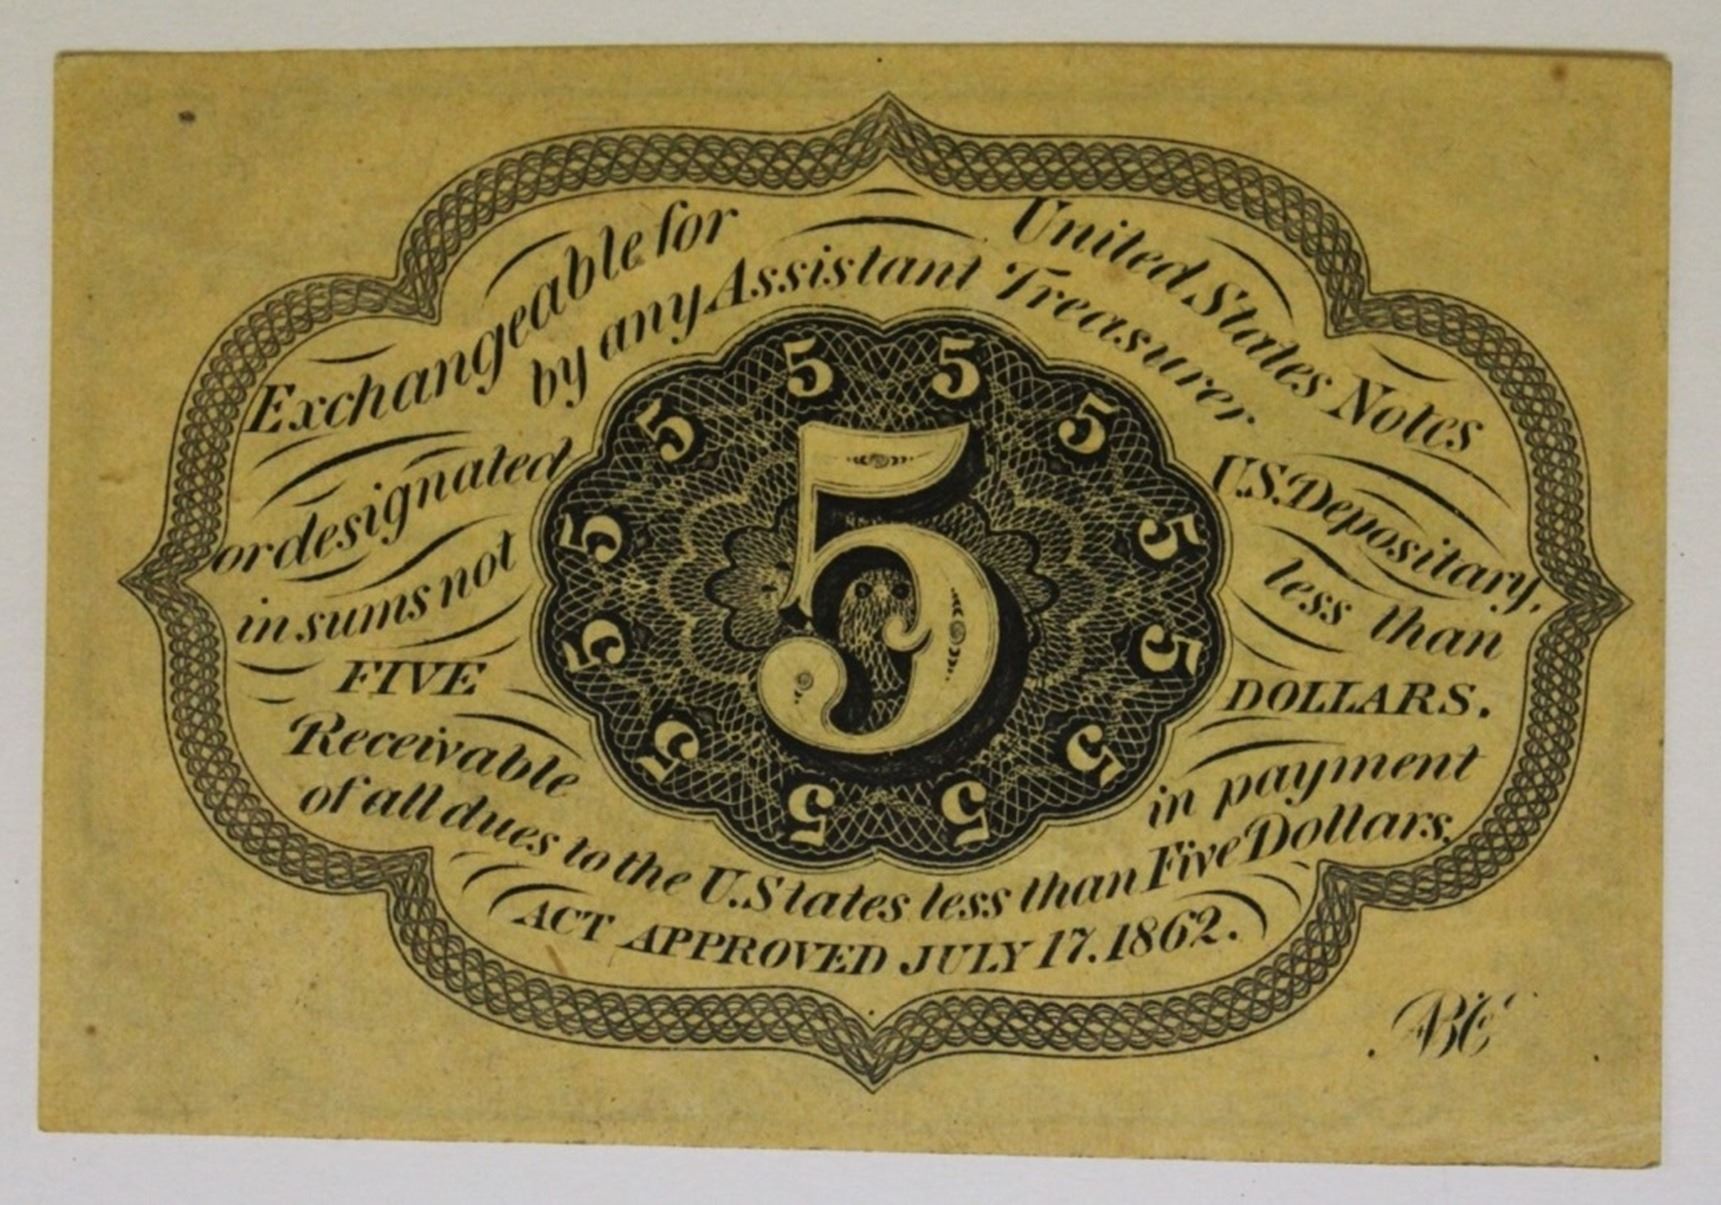 Exchangeable for United States Notes
by any Assistant Treasurer
or designated U.S. Depositary,
in sums not less than
FIVE DOLLARS.
Receivable in payment
of all dues to the U. States less than Five Dollars,
ACT APPROVED JULY 17. 1862.
5 5
5 5
5 5
5
5 5
5 5
5 5
ABCo